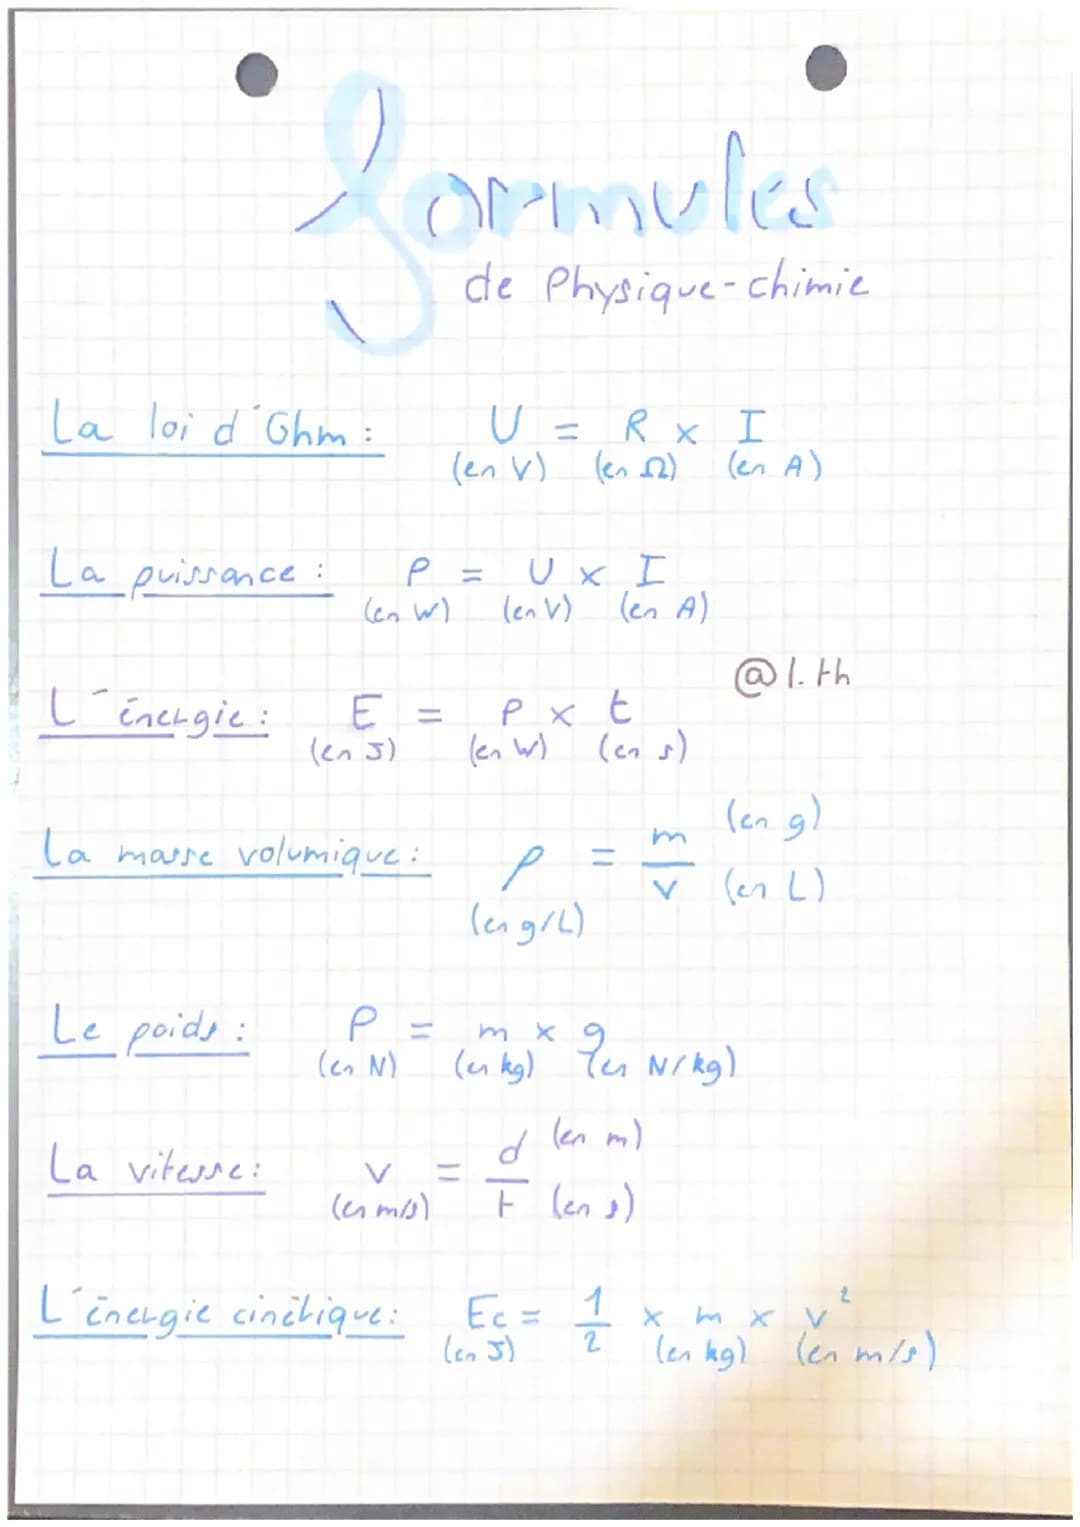 formules
de Physique-chimie
La loi d'Ohm : U = R x I
(en V) (en Ω) (en A)
La puissance : P = U x I
(en W) (en V) (en A)
@l.th
L'énergie : E = P x t
(en J) (en W) (en s)
La masse volumique : ρ = m/v (en g) (en L)
(en g/L)
Le poids : P = m x g
(en N) (en kg) (en N/kg)
La vitesse : v = d/t (en m) (en s)
(en m/s)
L'énergie cinétique : Ec = 1/2 x m x v²
(en J) (en kg) (en m/s)